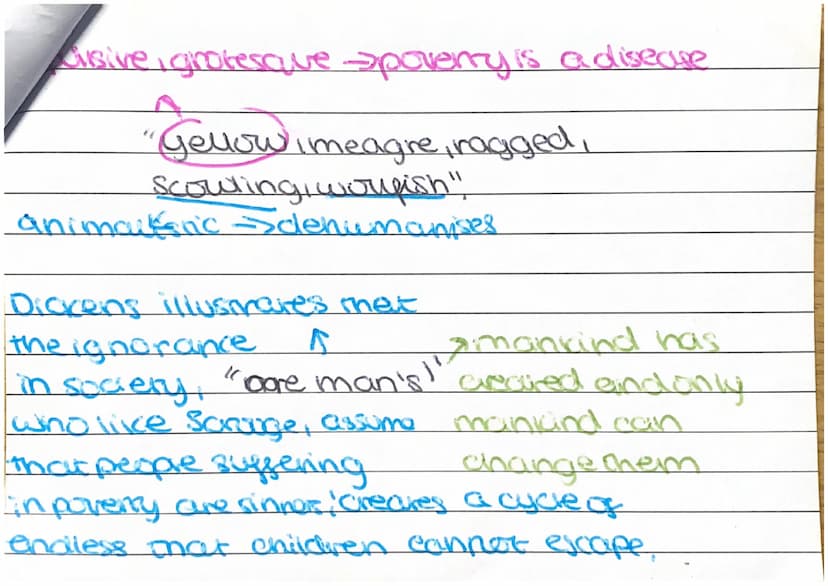 grotesque → poverty is a disease
"yellow, meagre, ragged,
scowling, wolfish",
animalistic → dehumanises
Dickens illustrates that
the ignorance ↑ ↗ mankind has
in society, "are man's" created and only
who like Scrooge, assume mankind can
that people suffering change them
in poverty are sinners! creates a cycle of
endless that children cannot escape.